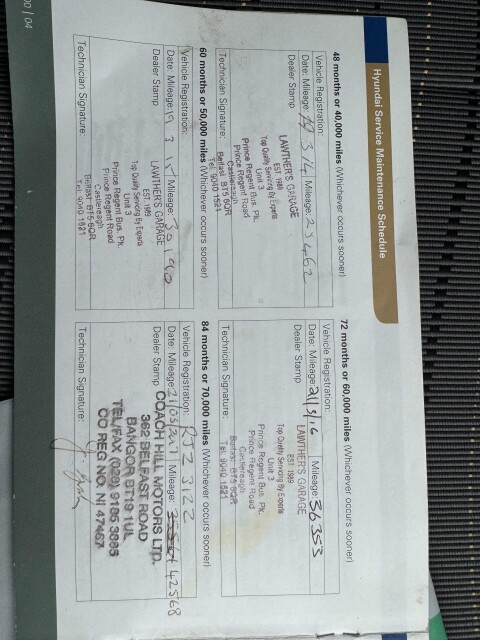 Hyundai Service Maintenance Schedule
48 months or 40,000 miles (Whichever occurs sooner)
Vehicle Registration:
Date: 19 3 14 Mileage: 23462
Dealer Stamp
LAWTHER'S GARAGE
EST. 1989
Top Quality Servicing By Experts
Unit 3
Prince Regent Bus. Pk.
Prince Regent Road
Castlereagh
Belfast BT5 6QR
Tel: 9040 1521
Technician Signature:
60 months or 50,000 miles (Whichever occurs sooner)
Vehicle Registration:
Date: Mileage 19 3 15 Mileage: 30190
Dealer Stamp
LAWTHER'S GARAGE
EST. 1989
Top Quality Servicing By Experts
Unit 3
Prince Regent Bus. Pk.
Prince Regent Road
Castlereagh
Belfast BT5 6QR
Tel: 9040 1521
Technician Signature:
72 months or 60,000 miles (Whichever occurs sooner)
Vehicle Registration:
Date: Mileage: 21/3/16 Mileage: 36353
Dealer Stamp
LAWTHER'S GARAGE
EST. 1989
Top Quality Servicing By Experts
Unit 3
Prince Regent Bus. Pk.
Prince Regent Road
Castlereagh
Belfast BT5 6QR
Tel: 9040 1521
Technician Signature:
84 months or 70,000 miles (Whichever occurs sooner)
Vehicle Registration:
Date: Mileage: 21/03/2017 Mileage: 42568
Dealer Stamp
COACH HILL MOTORS LTD.
362 BELFAST ROAD
BANGOR BT19 1UL
TEL/FAX (028) 9185 3885
CO REG NO. NI 47467
Technician Signature: